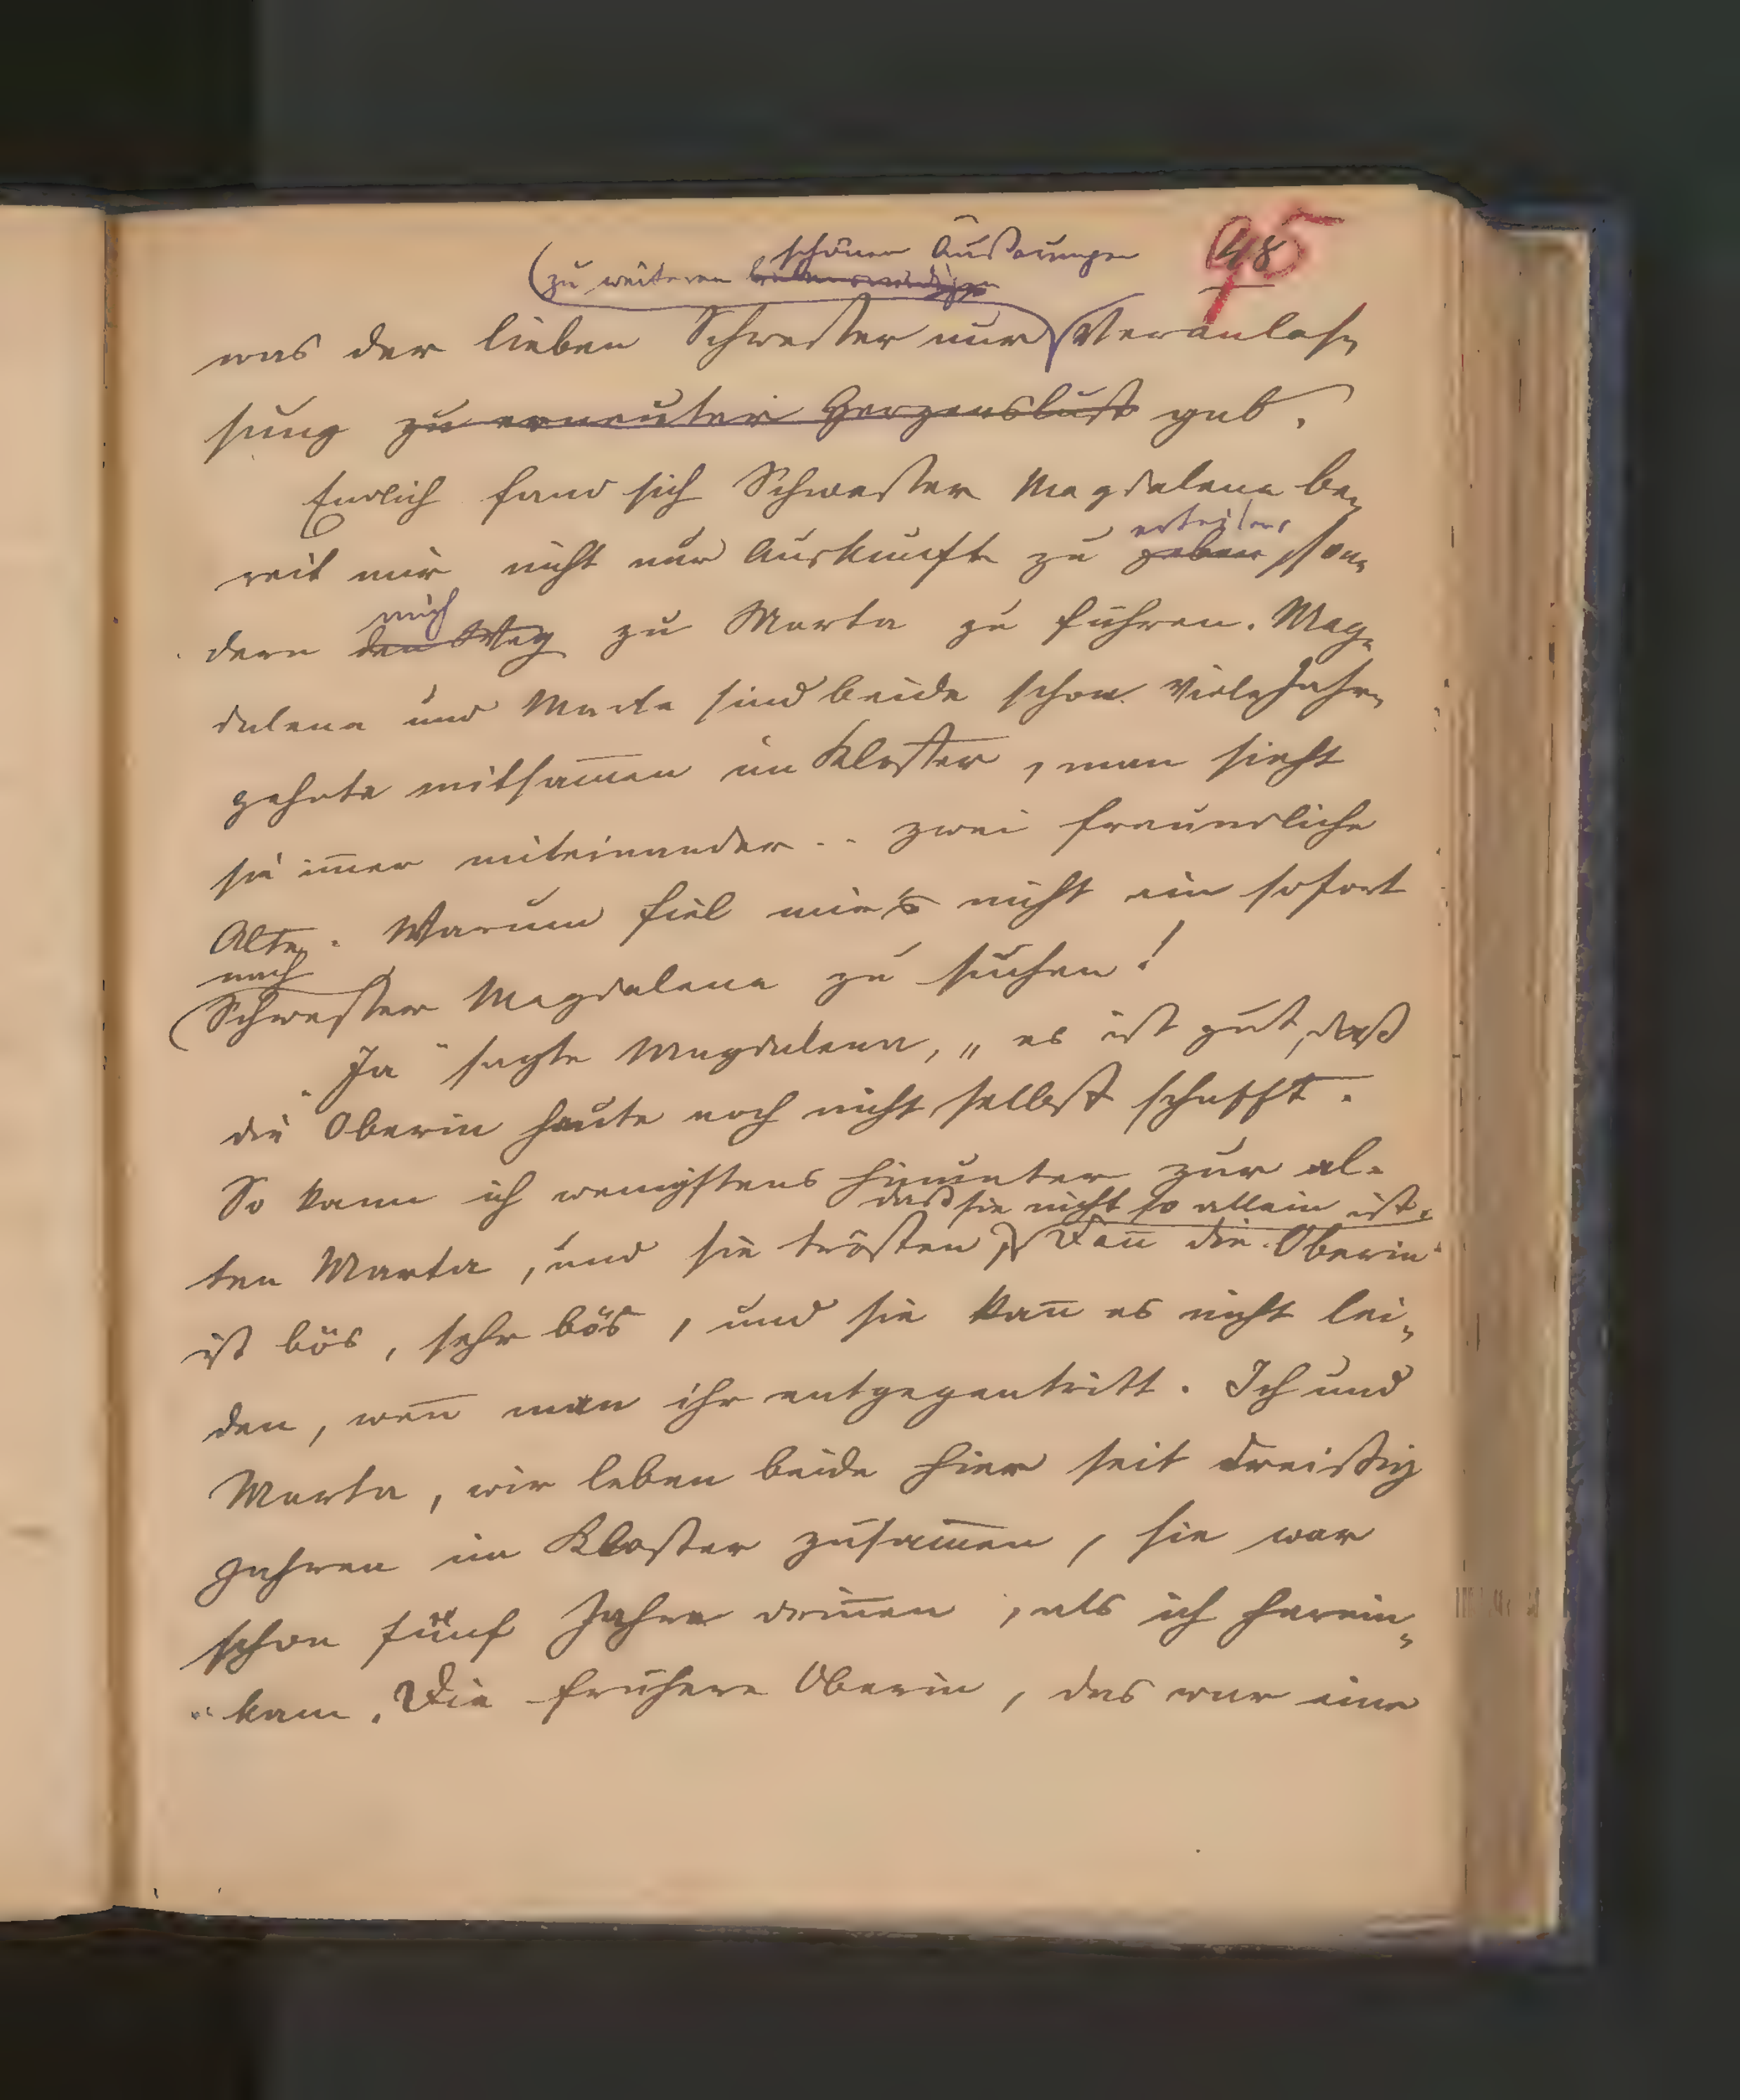 48
95
schönen Äußerungen
zu weiteren
was der lieben Schwester nur Veranlas-
sung zu erneuter Herzenslust gab.
Endlich fand sich Schwester Magdalena be-
erteilen
reit mir nicht nur Auskunft zu geben, son-
mich
dern den Weg zu Marta zu führen. Mag-
dalena und Marta sind beide schon viele Jahr-
zehnte mitsam̅en im Kloster, man sieht
sie im̅er miteinander .. zwei freundliche
Alte. Warum fiel mir's nicht ein sofort
nach
Schwester Magdalena zu suchen!
"Ja" sagte Magdalena, „es ist gut, daß
die Oberin heute noch nicht selbst schafft.
So kann ich wenigstens hinunter zur al-
daß sie nicht so allein ist.
ten Marta, und sie trösten, Den̅ die Oberin
ist bös, sehr bös, und sie kan̅ es nicht lei-
den, wen̅ man ihr entgegentritt. Ich und
Marta, wir leben beide hier seit dreißig
Jahren im Kloster zusam̅en, sie war
schon fünf Jahre drin̅en, als ich herein-
kam. Die frühere Oberin, das war eine